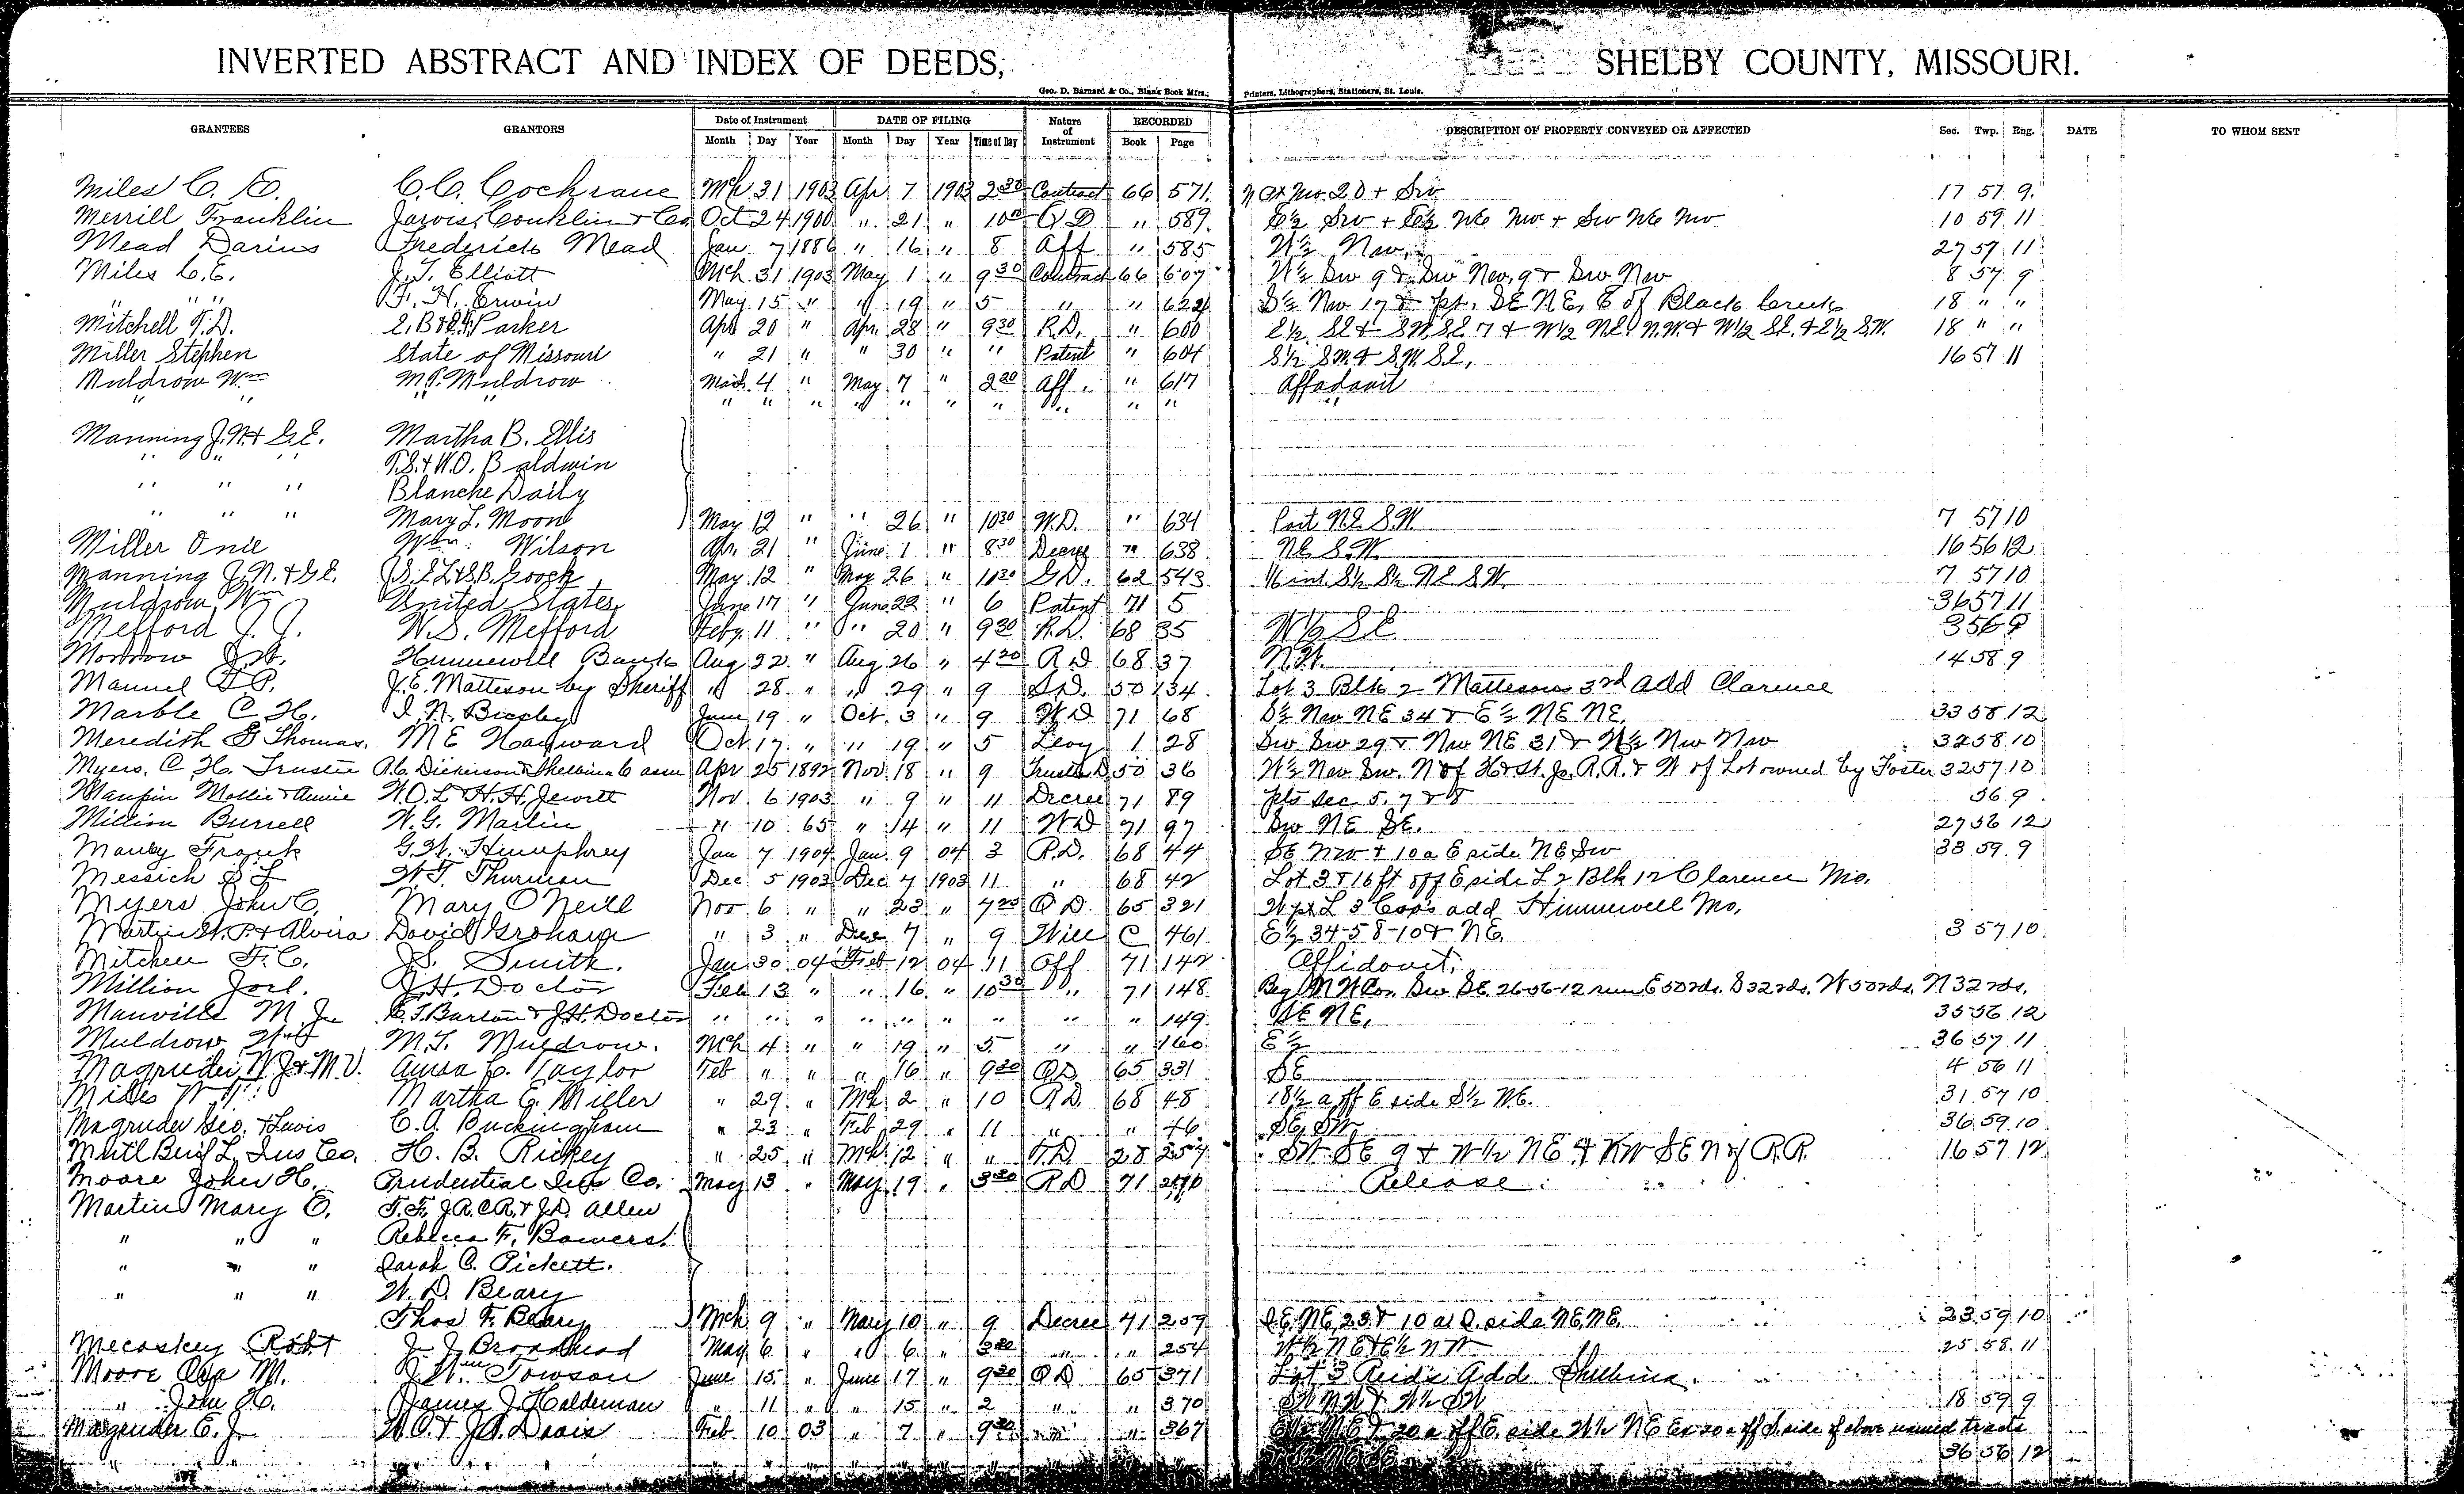 INVERTED ABSTRACT AND INDEX OF DEEDS, SHELBY COUNTY, MISSOURI.
Geo. D. Barnard & Co., Blank Book Mfrs., Printers, Lithographers, Stationers, St. Louis.
GRANTEES GRANTORS Date of Instrument DATE OF FILING Nature of Instrument RECORDED DESCRIPTION OF PROPERTY CONVEYED OR AFFECTED Sec. Twp. Rng. DATE TO WHOM SENT
Month Day Year Month Day Year Time of Day Book Page
Miles C. E. C. C. Cochrane Mch 31 1903 Apr 7 1903 2 30 Contract 66 571 17 57 9
Merrill Franklin Jarvis, Conklin & Co Oct 24 1900 " 21 " 10 Q D " 589 E½ Sw + E½ NE Nw + Sw NE Nw 10 59 11
Mead Darius Frederick Mead Jan 7 1886 " 16 " 8 Aff " 585 W½ Nw 27 57 11
Miles C. E. J. T. Elliott Mch 31 1903 May 1 " 9 30 Contract 66 607 W½ Sw 9 & Sw Nw, 9 & Sw Nw 8 57 9
" " " F. H. Erwin May 15 " " 19 " 5 " " 622 S½ Nw 17 & pt. SE N.E, E of Black Creek 18 " "
Mitchell T. D. Parker Apr 20 " Apr. 28 " 9 30 R.D. " 600 E½ SE & SW SE 7 & W½ N.E. N.W. & W½ SE. & E½ S.W. 18 " "
Miller Stephen State of Missouri " 21 " " 30 " " Patent " 604 S½ S.W. & S.W. S.E. 16 57 11
Muldrow Wm M. T. Muldrow March 4 " May 7 " 2 20 Aff " 617 Affadavit
" " " " " " " " " " " " " " "
Manning J. N. & G. E. Martha B. Ellis
" " " T. S. & W. O. Baldwin
" " " Blanche Daily
" " " Mary L. Moon May 12 " " 26 " 10 30 W.D. " 634 Part N.E. S.W. 7 57 10
Miller Onie Wm Wilson Apr. 21 " June 1 " 8 30 Decree " 638 N.E. S.W. 16 56 12
Manning J. N. & G. E. Gooch May 12 " May 26 " 10 30 G.D. 62 543 1/6 int. S½ S½ N.E. S.W. 7 57 10
Muldrow Wm United States June 17 " June 22 " 6 Patent 71 5 36 57 11
Mefford J. J. W. S. Mefford Feby. 11 " " 20 " 9 30 R.D. 68 35 W½ S.E. 3 56 9
Morrow J. A. Hunnewell Bank Aug 22 " Aug 26 " 4 20 R D 68 37 N.W. 14 58 9
Manuel J. E. Matteson by Sheriff " 28 " " 29 " 9 S.D. 50 134 Lot 3 Blk 2 Mattesons 3rd add Clarence
Marble C. H. June 19 " Oct 3 " 9 W D 71 68 S½ Nw NE 34 & E½ NE NE. 33 58 12
Meredith G Thomas. M E Hayward Oct 17 " " 19 " 5 Levy 1 28 Sw Sw 29 & Nw NE 31 & W½ Nw Nw 32 58 10
Myers, C. H. Trustee R. C. Dickerson & Shelbina C assn Apr 25 1892 Nov 18 " 9 Trusts D 50 36 W½ Nw Sw. N of H & St. Jo. R.R. & W of Lot owned by Foster 32 57 10
Maupin Mollie & Annie W. O. L & H. H. Jewett Nov. 6 1903 " 9 " 11 Decree 71 89 pts sec 5, 7 & 8 56 9
Million Burrell W. G. Martin " 10 65 " 14 " 11 W D 71 97 Sw NE SE. 27 56 12
Manly Frank G. W. Humphrey Jan 7 1904 Jan. 9 04 3 R.D. 68 44 SE Nw + 10 a E side NE Sw 33 59 9
Messick W. T. Thurman Dec. 5 1903 Dec 7 1903 11 " 68 42 Lot 3 & 16 ft off E side L 2 Blk 12 Clarence Mo.
Myers John C. Mary O'Neill Nov. 6 " " 23 " 4 25 Q D. 65 321 W pt L 3 Cox's add Hunnewell Mo.
Martin W. P. & Alvira David Graham " 3 " Dec 7 " 9 Will C 461 E½ 34-58-10 & NE. 3 57 10
Mitchell F. C. J. S. Smith. Jan 30 04 Feb 12 04 11 Aff 71 142 Affidavit.
Million Joel J. H. Doctor Feb 13 " " 16 " 10 30 " 71 148 Beg N W Cor. Sw SE. 26-56-12 run E 50 rds. S 32 rds. W 50 rds. N 32 rds.
Manville M. J. C. T. Burton & J. H. Doctor " " " " " " " " " 149 SE NE, 35 56 12
Muldrow Wm M. T. Muldrow. Mch 4 " " 19 " 5 " " 160 E½ 36 57 11
Magruder W. J. & M. V. Taylor Feb " " " 16 " 9 30 Q D. 65 331 SE 4 56 11
Miles W. H. Martha E. Miller " 29 " Mch 2 " 10 R D 68 48 18½ a off E side S½ NE. 31 57 10
Magruder Geo. & Lewis C. A. Buckingham " 23 " Feb 29 " 11 " " 46 SE, SW 36 59 10
Mutl Benf L. Ins Co. H. B. Rickey " 25 " Mch 12 " " T.D. 28 257 SW SE 9 & W½ NE & NW SE N of R.R. 16 57 12
Moore John H. Prudential Ins Co. May 13 " May 19 " 3 20 R D 71 Release
Martin Mary E. T. F. J. A. C. R. & J. D. Allen
" " " Rebecca F. Bowers
" " " Sarah C. Pickett.
" " " W. D. Beary
Thos F. Beary Mch 9 " May 10 " 9 Decree 71 259 SE NE 23 & 10 a S. side NE NE. 23 59 10
Mecoskey Robt J. J. Broadhead May 6 " " 6 " 3 20 " " 254 W½ NE & E½ NW 25 58 11
Moore M. J. Wm Towson June 15 " June 17 " 9 30 Q D 65 371 Lot 3 Reids Add Shelbina.
" John H. James J. Haldeman " 11 " " 15 " 2 " " 370 SW NW & W½ SW 18 59 9
Magruder E. J. W. C. & J. A. Davis Feb 10 03 " 7 " 9 30 " " 367 E½ NE & 20 a off E. side W½ NE Ex 20 a off S. side of above named tracts
36 56 12